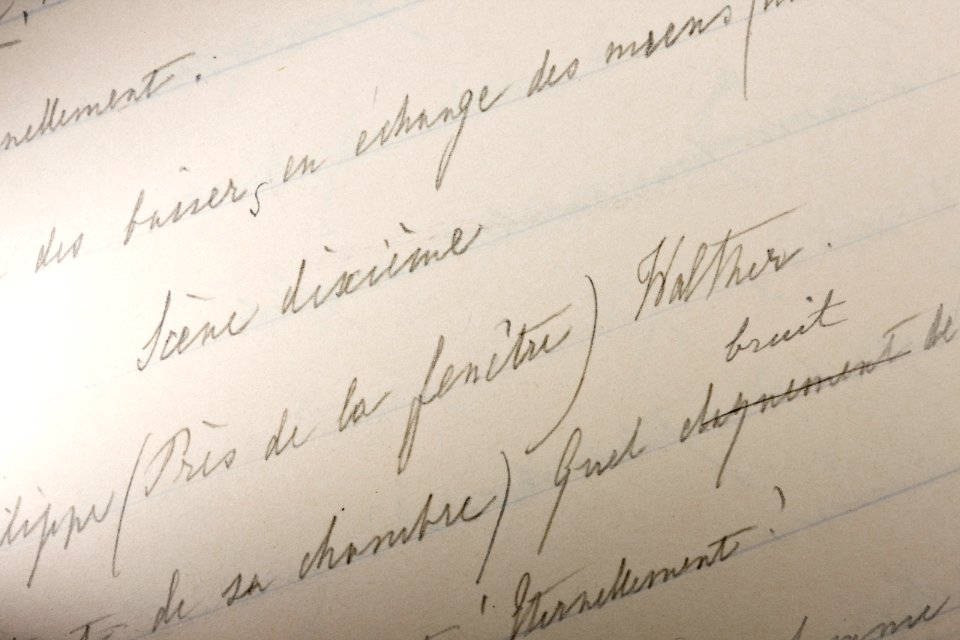 nellement.
des baisers, en échange des miens
Scène dixième
ilippe (Près de la fenêtre) Walther.
bruit
de sa chambre) Quel de
! Éternellement!